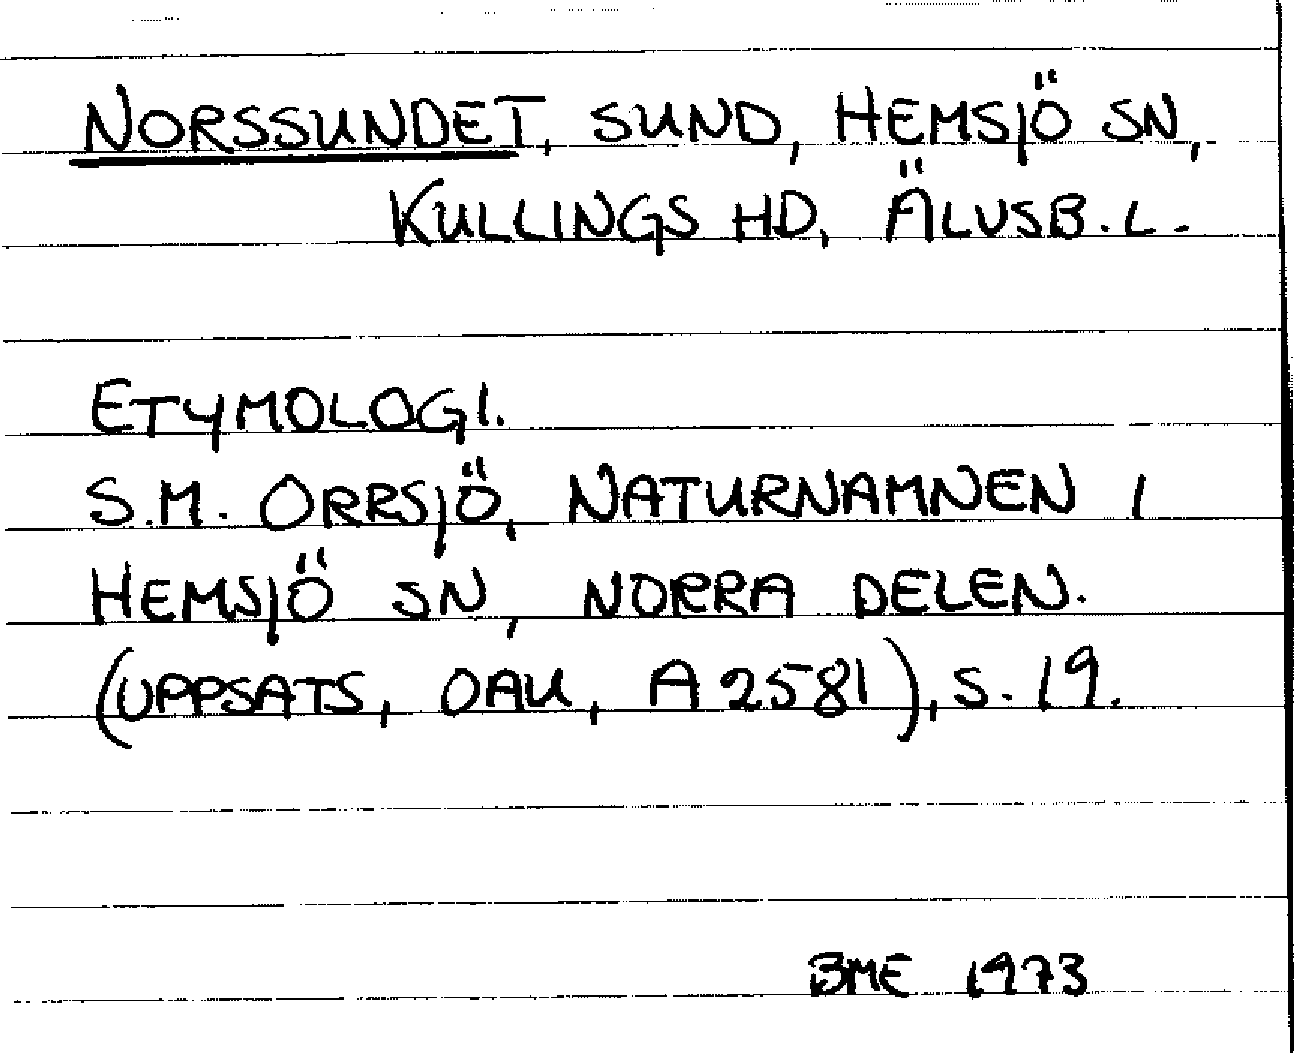 NORSSUNDET, SUND, HEMSJÖ SN,
KULLINGS HD, ÄLVSB. L.
ETYMOLOGI.
S.M. ORRSJÖ, NATURNAMNEN I
HEMSJÖ SN, NORRA DELEN.
(UPPSATS, OAU, A 2581), S. 19.
BME 1973